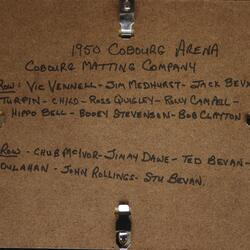 1950 COBOURG ARENA
COBOURG MATTING COMPANY
ROW: VIC VENNELL - JIM MEDHURST - JACK BEVA
TURPIN - CHILD - ROSS QUIGLEY - POLLY CAMPBELL -
HIPPO BELL - BOOEY STEVENSON - BOB CLAYTON
ROW - CHUB MCIVOR - JIMMY DAWE - TED BEVAN -
OULAHAN - JOHN ROLLINGS - STU BEVAN.